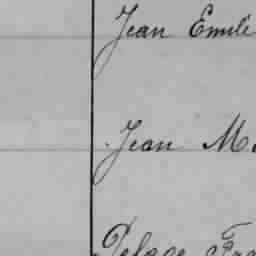 Jean Emile
Jean M.
Pelage Fra